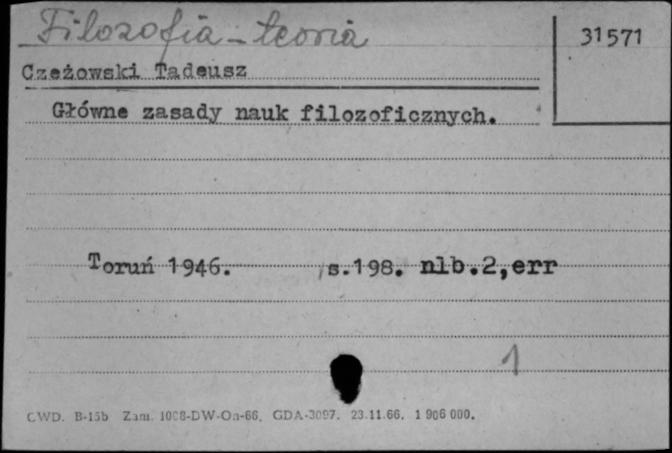 Filozofia - teoria
31571
Czeżowski Tadeusz
Główne zasady nauk filozoficznych.
Toruń 1946. s.198. nlb.2,err
1
CWD. B-15b Zam. 1008-DW-Oa-66. GDA-3097. 23.11.66. 1 906 000.